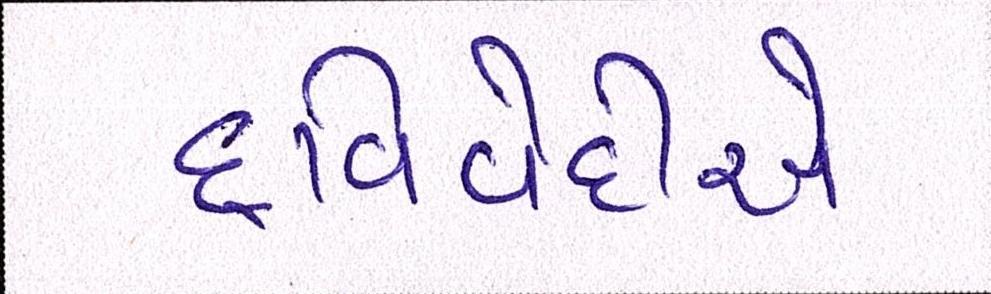 દ્વિવેદીએ